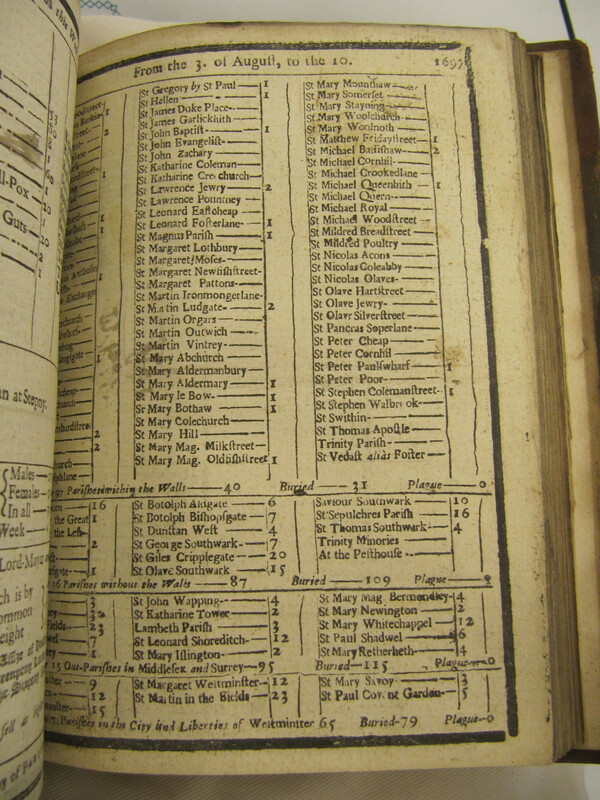 From the 3. of August, to the 10. 1697
St Gregory by St Paul 1
St Hellen 1
St James Duke Place
St James Garlickhith
St John Baptist 1
St John Evangelist
St John Zachary
St Katharine Coleman
St Katharine Creechurch
St Lawrence Jewry 2
St Lawrence Pountney
St Leonard Eastcheap
St Leonard Fosterlane 1
St Magnus Parish 1
St Margaret Lothbury
St Margaret Moses
St Margaret Newfishstreet
St Margaret Pattons
St Martin Ironmongerlane
St Martin Ludgate 2
St Martin Orgars
St Martin Outwich
St Martin Vintrey
St Mary Abchurch
St Mary Aldermanbury
St Mary Aldermary 1
St Mary le Bow 1
St Mary Bothaw 1
St Mary Colechurch
St Mary Hill
St Mary Mag. Milkstreet
St Mary Mag. Oldfishstreet 1
St Mary Mounthaw
St Mary Somerset
St Mary Stayning
St Mary Woolchurch
St Mary Woolnoth
St Matthew Fridaystreet 1
St Michael Bassishaw 2
St Michael Cornhil
St Michael Crookedlane
St Michael Queenhith 1
St Michael Quern
St Michael Royal
St Michael Woodstreet
St Mildred Breadstreet
St Mildred Poultry
St Nicolas Acons
St Nicolas Coleabby
St Nicolas Olaves
St Olave Hartstreet
St Olave Jewry
St Olave Silverstreet
St Pancras Soperlane
St Peter Cheap
St Peter Cornhil
St Peter Paulswharf
St Peter Poor
St Stephen Colemanstreet 1
St Stephen Walbrook
St Swithin
St Thomas Apostle
Trinity Parish
St Vedast alias Foster
97 Parishes within the Walls 40 Buried 31 Plague 0
St Botolph Aldgate 6
St Botolph Bishopsgate 7
St Dunstan West 4
St George Southwark 7
St Giles Cripplegate 20
St Olave Southwark 15
Saviour Southwark 10
St Sepulchres Parish 16
St Thomas Southwark 4
Trinity Minories
At the Pesthouse
16 Parishes without the Walls 87 Buried 109 Plague 0
St John Wapping 4
St Katharine Tower 2
Lambeth Parish 3
St Leonard Shoreditch 12
St Mary Islington 2
St Mary Mag. Bermondsey 4
St Mary Newington 2
St Mary Whitechappel 12
St Paul Shadwel 6
St Mary Retherheth 4
13 Out-Parishes in Middlesex and Surrey 95 Buried 115 Plague 0
St Margaret Westminster 12
St Martin in the Fields 23
St Mary Savoy 3
St Paul Covent Garden 5
7 Parishes in the City and Liberties of Westminster 65 Buried 79 Plague 0
Males
Females
In all